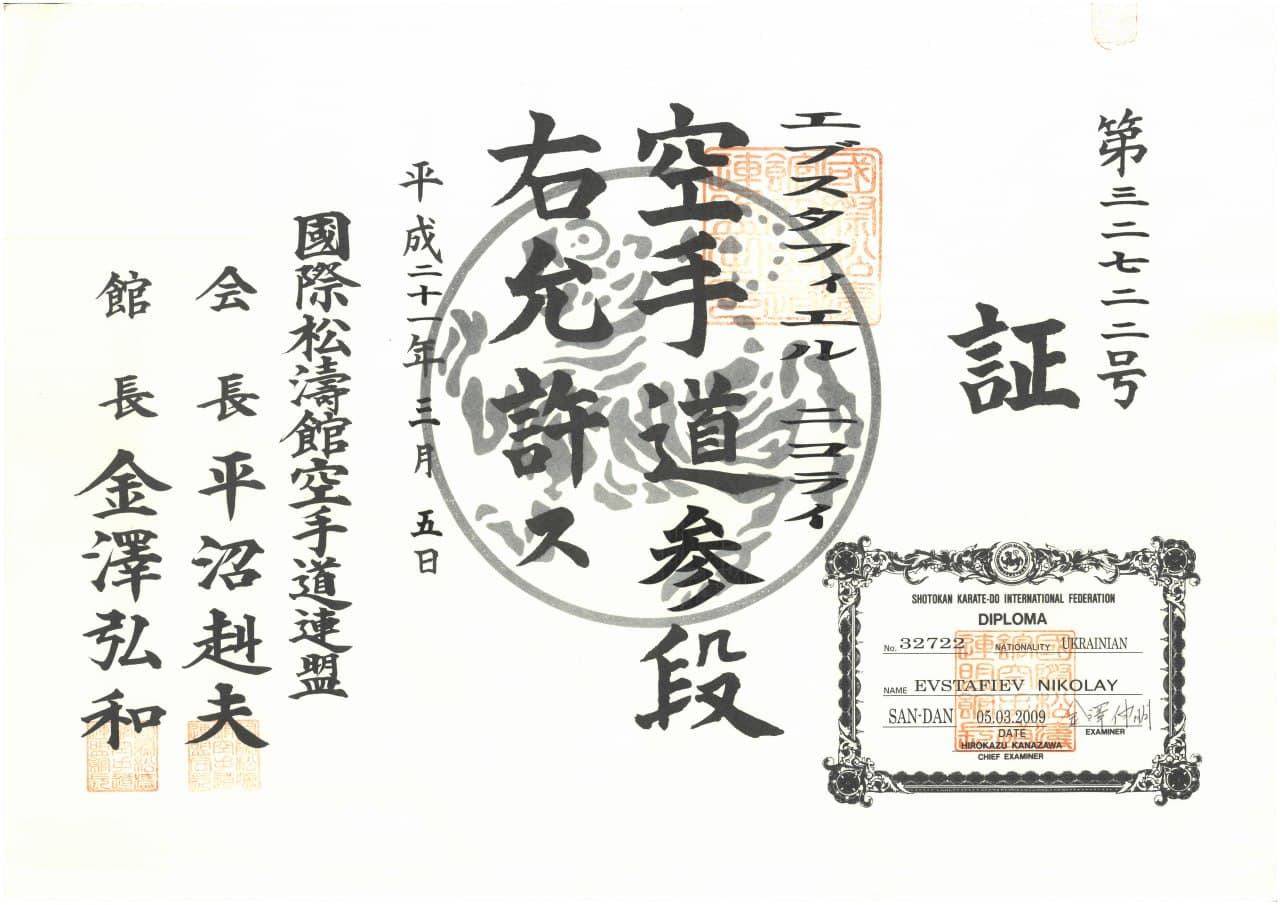 第三二七二二号
証
エブスタフィエル ニコライ
空手道参段
右允許ス
平成二十一年 三月 五日
國際松濤館空手道連盟
会長 平沼赳夫
館長 金澤弘和
SHOTOKAN KARATE-DO INTERNATIONAL FEDERATION
DIPLOMA
No. 32722 NATIONALITY UKRAINIAN
NAME EVSTAFIEV NIKOLAY
SAN-DAN 05.03.2009
DATE EXAMINER
HIROKAZU KANAZAWA
CHIEF EXAMINER